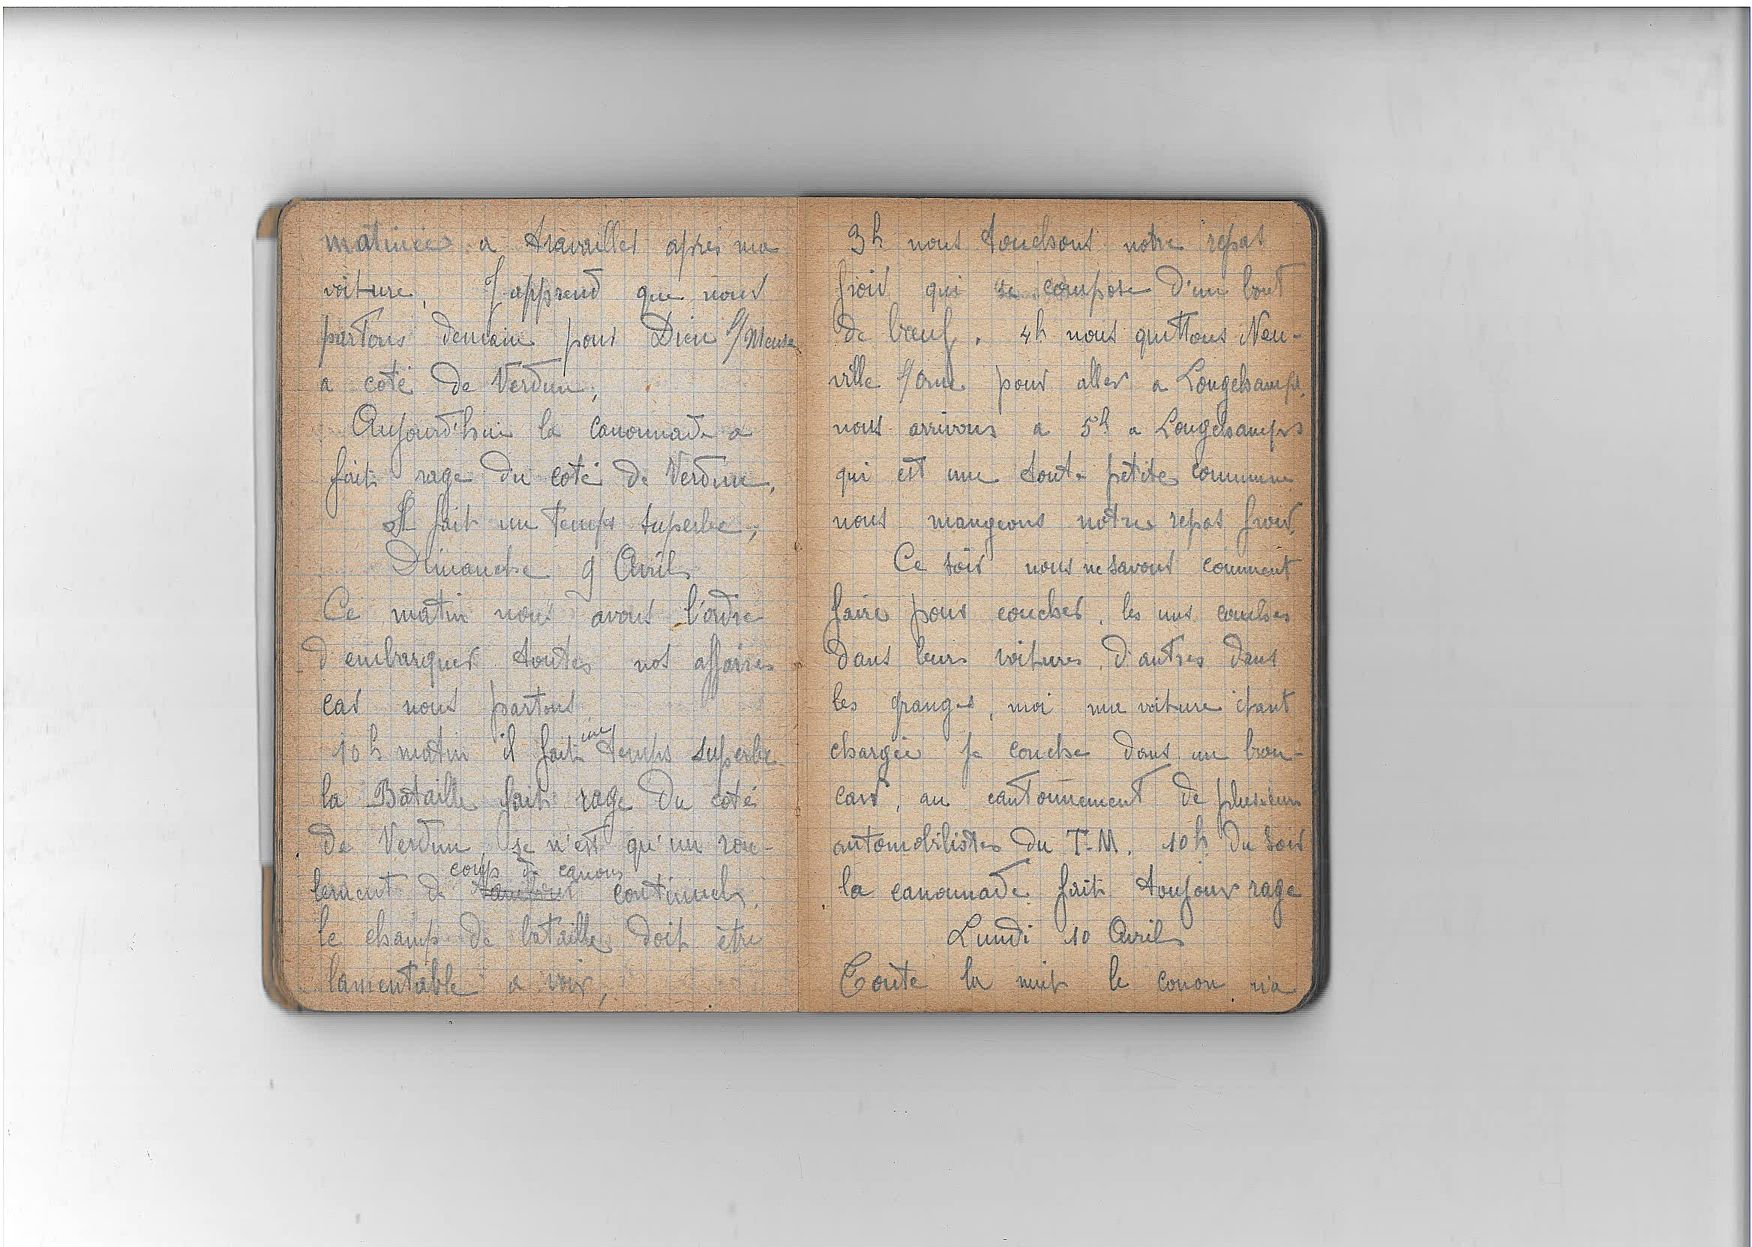 matinée a travailler après ma
voiture, J'apprend que nous
partons demain pour Dieu s/Meuse
a coté de Verdun,
Aujourd'hui la canonnade a
fait rage du coté de Verdun,
Il fait un temps superbe,
Dimanche 9 Avril
Ce matin nous avons l'ordre
d'embarquer toutes nos affaires
car nous partons
10h matin il fait un temps superbe
la Bataille fait rage du coté
de Verdun se n'est qu'un rou-
coups de canons
lement de continuels,
le champ de bataille doit être
lamentable a voir,
3h nous touchons notre repas
froid qui se compose d'un bout
de bœuf. 4h nous quittons Neu-
ville s/Orne pour aller a Longchamps,
nous arrivons a 5h a Longchamps
qui est une toute petite commune
nous mangeons notre repas froid
Ce soir nous ne savons comment
faire pour coucher, les uns couches
dans leurs voitures, d'autres dans
les granges, moi ma voiture étant
chargée je couche dans un bran-
card, au cantonnement de plusieurs
automobilistes du T.M. 10h du soir
la canonnade fait toujours rage
Lundi 10 Avril
Toute la nuit le canon n'a